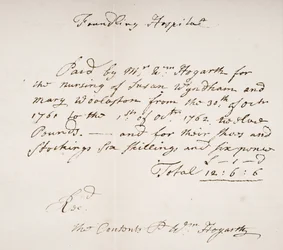 Foundling Hospital
Paid by Mr. Wm. Hogarth for
the nursing of Susan Wyndham and
mary Woolaston from the 30th of Octr
1761 to the 1st of Octr 1762 twelve
Pounds. — and for their shoes and
Stockings six shillings and six pence
L - s - d
Total 12 : 6 : 6
Recd
the Contents P Wm Hogarth